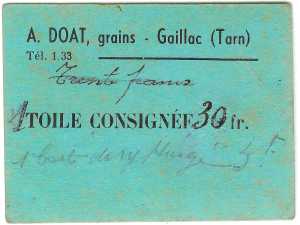 A. DOAT, grains - Gaillac (Tarn)
Tél. 1.33
Trente francs
1 TOILE CONSIGNÉE 30 fr.
1